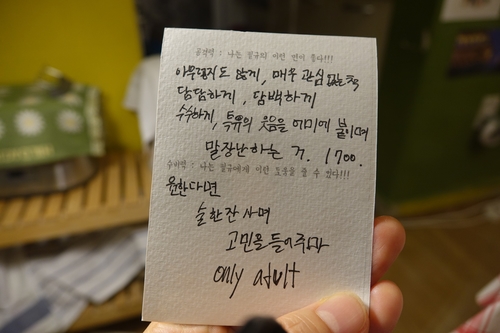 공격력 : 나는 필규의 이런 면이 좋다!!!
아무렇지도 않게, 매우 관심 없는 척
담담하게, 담백하게
수수하게, 특유의 웃음을 어미에 붙이며
말장난하는 거. 1700.
수비력 : 나는 필규에게 이런 도움을 줄 수 있다!!!
원한다면
술 한잔 사며
고민을 들어주마
only adult